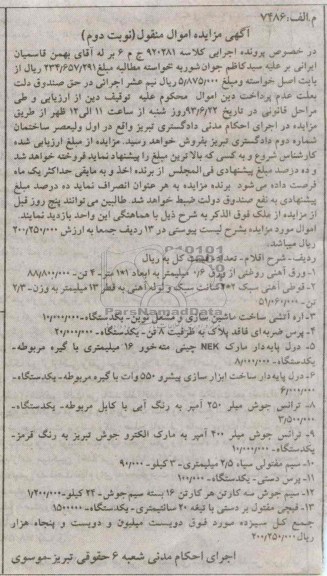 م.الف:۷۴۸۶
آگهی مزایده اموال منقول(نوبت دوم)
در خصوص پرونده اجرایی کلاسه ۹۲۰۲۸۱ ج م ۶ بر له آقای بهمن قاسمیان
ایرانی بر علیه سیدکاظم جوان شوربه خواسته مطالبه مبلغ ۲۳۴/۶۵۷/۲۹۱ ریال از
بابت اصل خواسته ومبلغ ۵/۸۷۵/۰۰۰ ریال نیم عشر اجرائی در حق صندوق دولت
بعلت عدم پرداخت دین اموال محکوم علیه توقیف دین از ارزیابی و طی
مراحل قانونی در تاریخ ۹۳/۶/۲۲ روز شنبه از ساعت ۱۱ الی ۱۲ ظهر از طریق
مزایده در اجرای احکام مدنی دادگستری تبریز واقع در اول ولیعصر ساختمان
شماره دوم دادگستری تبریز بفروش خواهد رسید. مزایده از مبلغ ارزیابی شده
کارشناس شروع و به کسی که بالاترین مبلغ را پیشنهاد نماید فروخته خواهد شد
و ده درصد مبلغ پیشنهادی فی المجلس از برنده اخذ و به مابقی حداکثر یک ماه
فرصت داده می شود برنده مزایده به هر عنوان انصراف نماید ده درصد مبلغ
پیشنهادی به نفع صندوق دولت ضبط خواهد شد. طالبین می توانند پنج روز قبل
از مزایده از ملک فوق الذکر به شرح ذیل با هماهنگی این واحد بازدید نمایند.
اموال مورد مزایده بشرح لیست پیوستی در ۱۳ ردیف جمعا به ارزش ۲۰۰/۲۵۰/۰۰۰
ریال میباشد.
ردیف- شرح اقلام- تعداد- قیمت کل به ریال
۱- ورق آهنی روغنی از ورق ۰/۶ میلیمتر به ابعاد ۱*۱ متر- ۴ تن- ۸۸/۸۰۰/۰۰۰
۲- قوطی آهنی سبک ۲*۴ کانت سبک و لوله آهنی به قطر ۱۳ میلیمتر به وزن- ۲/۳
تن- ۵۱/۰۶۰/۰۰۰
۳- اره آتشی ساخت ماشین سازی و مشعل نوین- یکدستگاه- ۱۰/۰۰۰/۰۰۰
۴- پرس ضربه ای فاقد پلاک به ظرفیت ۸ فن- یکدستگاه- ۲۰/۰۰۰/۰۰۰
۵- درل پایه دار مارک NEK چینی مته خور ۱۶ میلیمتری با گیره مربوطه-
یکدستگاه- ۸/۰۰۰/۰۰۰
۶- درل پایه دار ساخت ابزار سازی پیشرو ۵۵۰ وات با گیره مربوطه- یکدستگاه-
۶/۰۰۰/۰۰۰
۸- ترانس جوش میلر ۲۵۰ آمپر به رنگ آبی با کابل مربوطه- یکدستگاه-
۳/۵۰۰/۰۰۰
۹- ترانس جوش میلر ۴۰۰ آمپر به مارک الکترو جوش تبریز به رنگ قرمز-
یکدستگاه- ۱۰/۰۰۰/۰۰۰
۱۰- سیم مفتولی سیاه ۲/۵ میلیمتری- ۳ کیلو- ۹۰/۰۰۰
۱۱- پرس دستی- یکدستگاه- ۱۰۰/۰۰۰
۱۲- سیم جوش سه کارتن هر کارتن ۱۶ بسته سیم جوش- ۲۴ کیلو- ۱/۲۰۰/۰۰۰
۱۳- قیچی مفتول بر دستی با تیغه ۲۰ سانتیمتری- یکدستگاه- ۱۵۰۰۰۰۰
جمع کل سیزده مورد فوق دویست میلیون و دویست و پنجاه هزار
ریال ۲۰۰/۲۵۰/۰۰۰
اجرای احکام مدنی شعبه ۶ حقوقی تبریز- موسوی